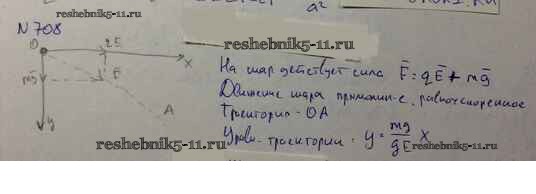 a²
reshebnik5-11.ru
N 708
reshebnik5-11.ru
O qE x
mg F
A
y
На шар действует сила F̄ = qĒ + mḡ
Движение шара прямолин-е, равноускоренное
Траектория - OA
Уравн. траектории: y = mg/qE x
reshebnik5-11.ru
reshebnik5-11.ru